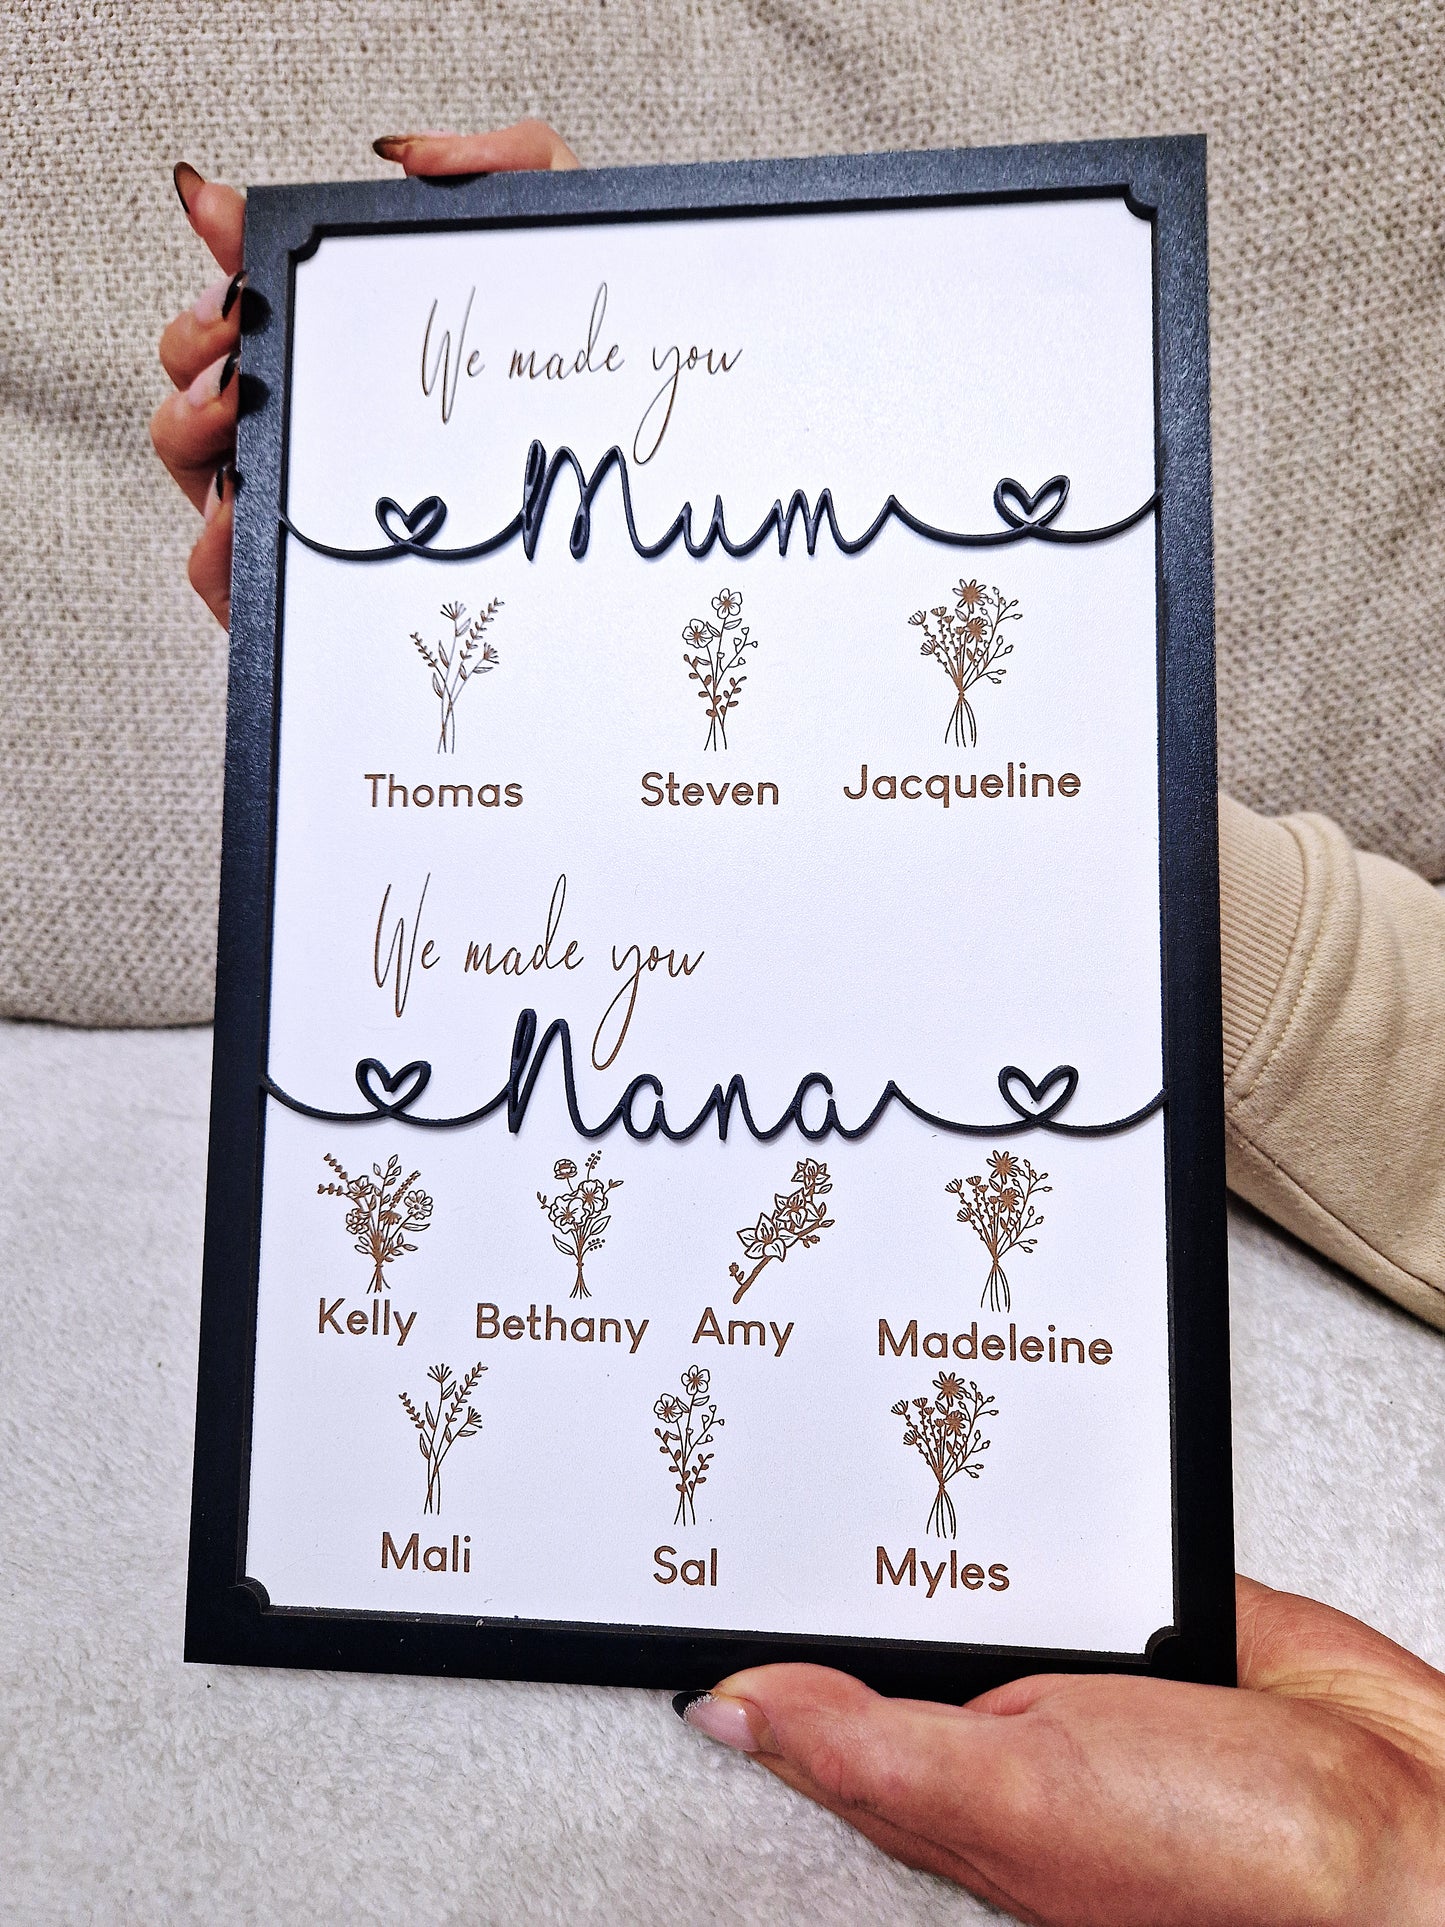 We made you
Mum
Thomas Steven Jacqueline
We made you
Nana
Kelly Bethany Amy Madeleine
Mali Sal Myles